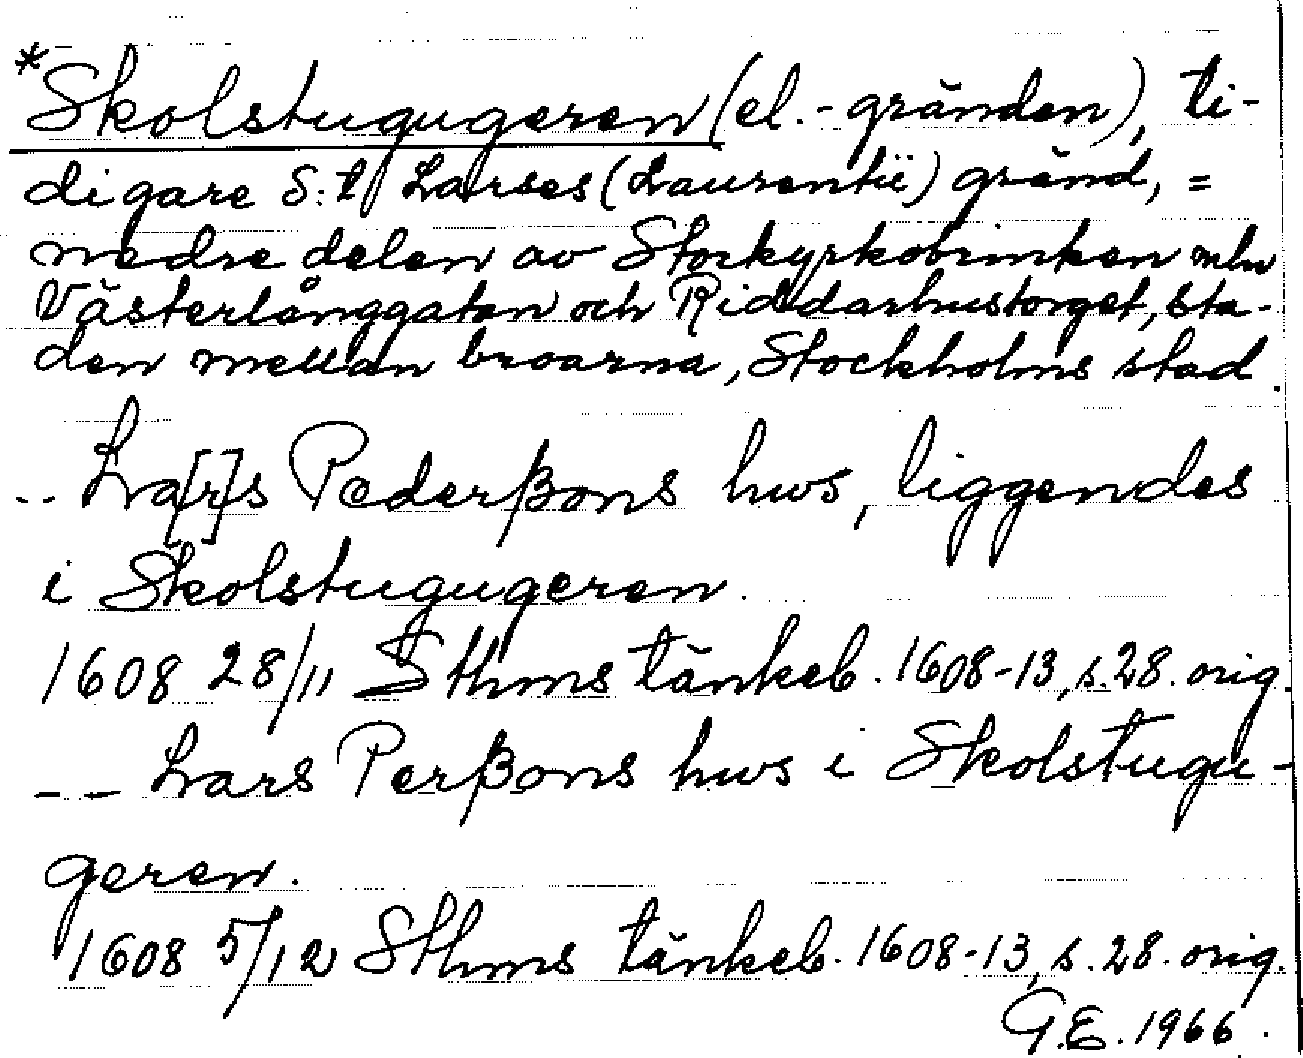 *Skolstugugeren (el. -gränden), ti-
digare S:t Larses (Laurentii) gränd, =
nedre delen av Storkyrkobrinken mln
Västerlånggatan och Riddarhustorget, sta-
den mellan broarna, Stockholms stad.
-- La[r]s Pederßons hws, liggendes
i Skolstugugeren.
1608 28/11 Sthms tänkeb. 1608-13, s. 28. orig.
-- Lars Perßons hws i Skolstugu-
geren.
1608 5/12 Sthms tänkeb. 1608-13, s. 28. orig.
G.E. 1966.